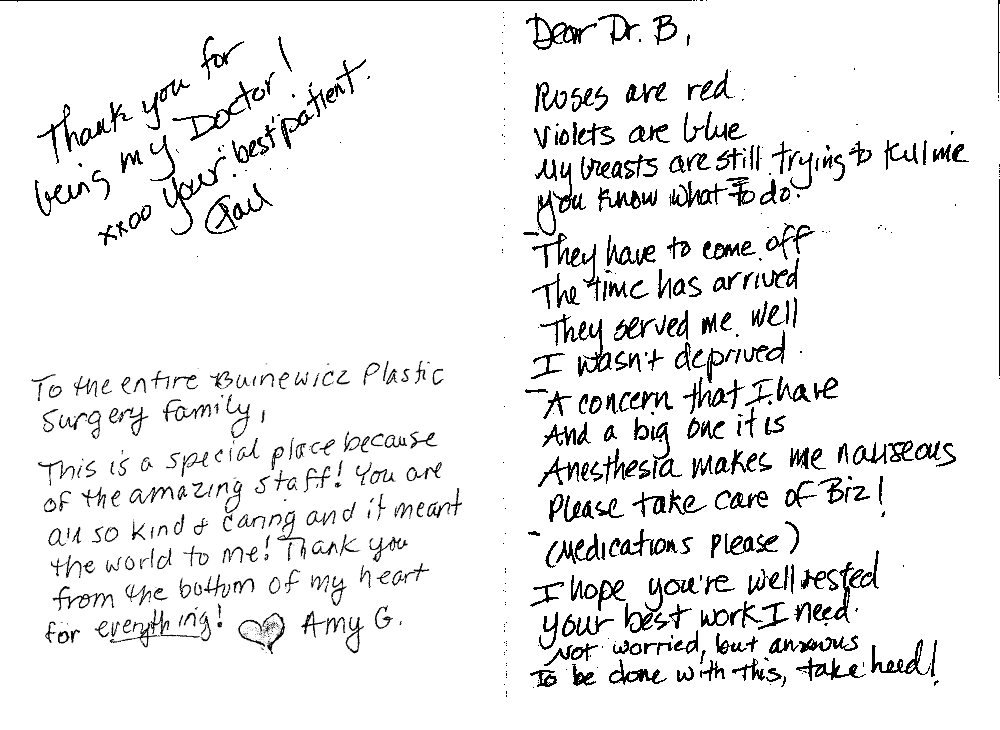 Thank you for
being my Doctor!
xxoo your "best patient"
Gail
To the entire Buinewicz Plastic
Surgery family,
This is a special place because
of the amazing staff! You are
all so kind & caring and it meant
the world to me! Thank you
from the bottom of my heart
for everything! ♡ Amy G.
Dear Dr. B,
Roses are red
Violets are blue
My breasts are still trying to kill me
You know what to do.
They have to come off
The time has arrived
They served me well
I wasn't deprived.
A concern that I have
And a big one it is
Anesthesia makes me nauseous
Please take care of Biz!
(Medications Please)
I hope you're well rested
Your best work I need.
Not worried, but anxious
To be done with this, take heed!